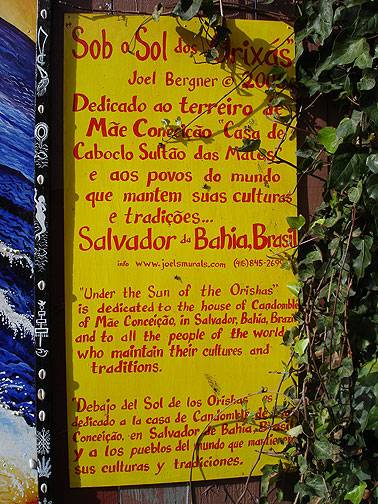 "Sob o Sol dos Orixás"
Joel Bergner ©
Dedicado ao terreiro de
Mãe Conceição "Casa de
Caboclo Sultão das Matas"
e aos povos do mundo
que mantem suas culturas
e tradições...
Salvador da Bahia, Brasil
info www.joelsmurals.com (415)845-2695
"Under the Sun of the Orishas"
is dedicated to the house of Candomble
of Mãe Conceição, in Salvador, Bahia, Brazil
and to all the people of the world
who maintain their cultures and
traditions.
"Debajo del Sol de los Orishas" es
dedicado a la casa de Candomble de
Conceição, en Salvador de Bahia, Brasil
y a los pueblos del mundo que mantienen
sus culturas y tradiciones.